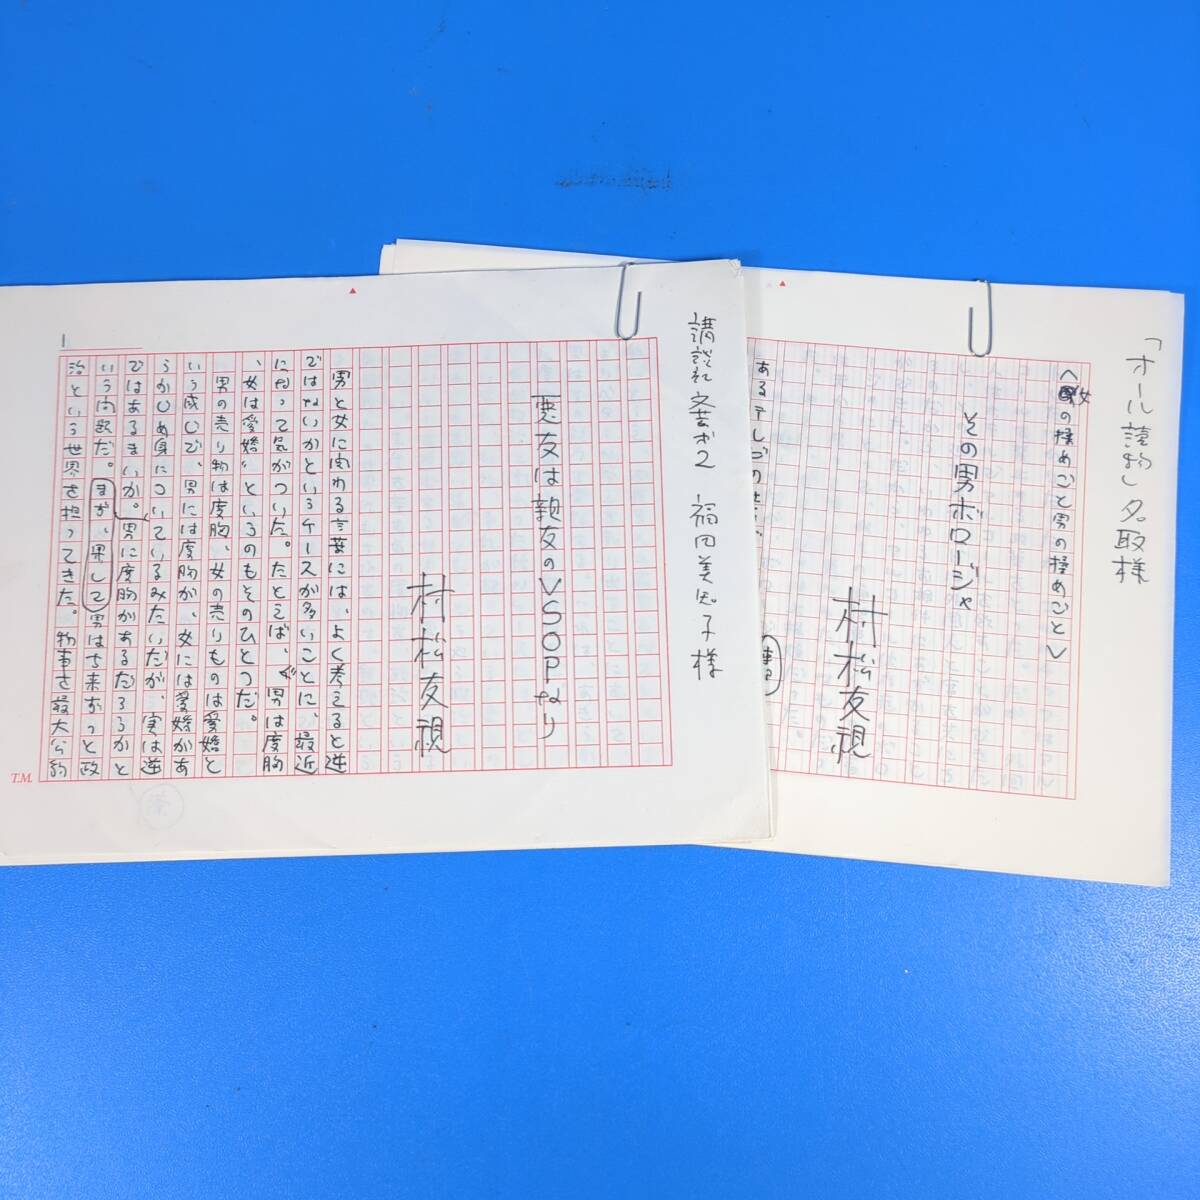 講談社文芸第2 福田美知子様
悪友は親友のVSOPなり
村松友視
男と女に関わる言葉には、よく考えると逆
ではないかというケースが多いことに、最近
になって気がついた。たとえば、“男は度胸
、女は愛嬌”というのもそのひとつだ。
男の売り物は度胸、女の売りものは愛嬌と
いう感じで、男には度胸が、女には愛嬌があ
らかじめ身についているみたいだが、実は逆
ではあるまいか。男に度胸があるだろうかと
いう問題だ。まず、果して男は古来ずっと政
治という世界を担ってきた。物事を最大公約
1
T.M.
「オール讀物」名取様
〈女の揉めごと男の揉めごと〉
その男ボロージャ
村松友視
あるテレビの